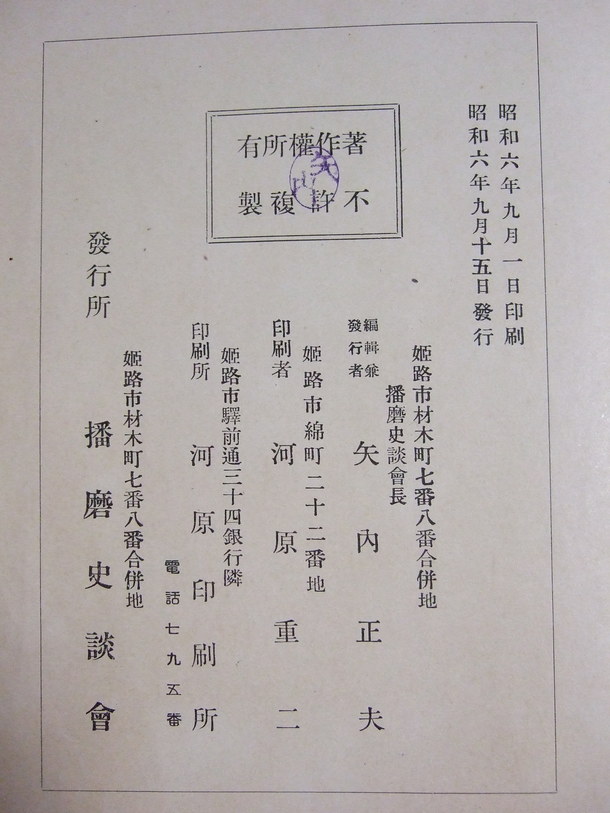 昭和六年九月一日印刷
昭和六年九月十五日發行
著作權所有
不許複製
姬路市材木町七番八番合併地
播磨史談會長
編輯兼
發行者
矢內正夫
姬路市綿町二十二番地
印刷者
河原重二
姬路市驛前通三十四銀行隣
印刷所
河原印刷所
電話七九五番
姬路市材木町七番八番合併地
發行所
播磨史談會